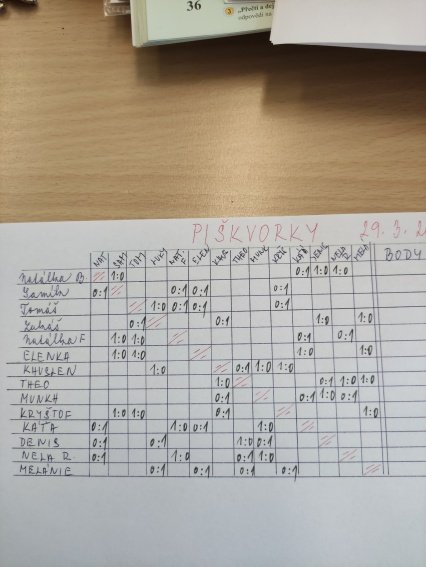 36
3 „Přečti a dej
odpovědi na
PIŠKVORKY 29.3.2
NAT. SAM TOM LUKY NAT. F ELEN KHUS THEO MUNK KRYŠ KÁŤA DENIS NELA R. MELA BODY
Natálka B. 1:0 0:1 1:0 1:0
Samík 0:1 0:1 0:1 0:1
Tomáš 1:0 0:1 0:1 0:1
Lukáš 0:1 0:1 1:0 1:0
Natálka F 1:0 1:0 0:1 0:1
ELENKA 1:0 1:0 1:0 1:0
KHUSLEN 1:0 0:1 1:0 1:0
THEO 1:0 0:1 1:0 1:0
MUNKH 0:1 0:1 1:0 0:1
KRYŠTOF 1:0 1:0 0:1 1:0
KÁŤA 0:1 1:0 0:1 1:0
DENIS 0:1 0:1 1:0 0:1
NELA R. 0:1 1:0 0:1 1:0
MELANIE 0:1 0:1 0:1 0:1